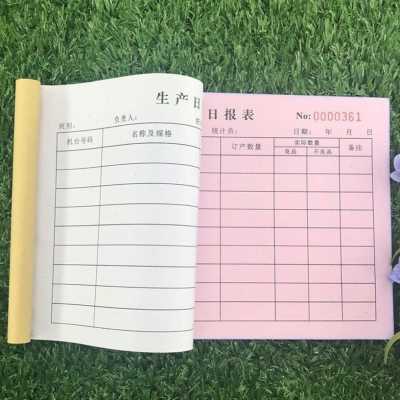 生产日
班别： 负责人：
机台号码 名称及规格
日报表 No:0000361
统计员： 日期： 年 月 日
订产数量 实际数量 备注
良品 不良品